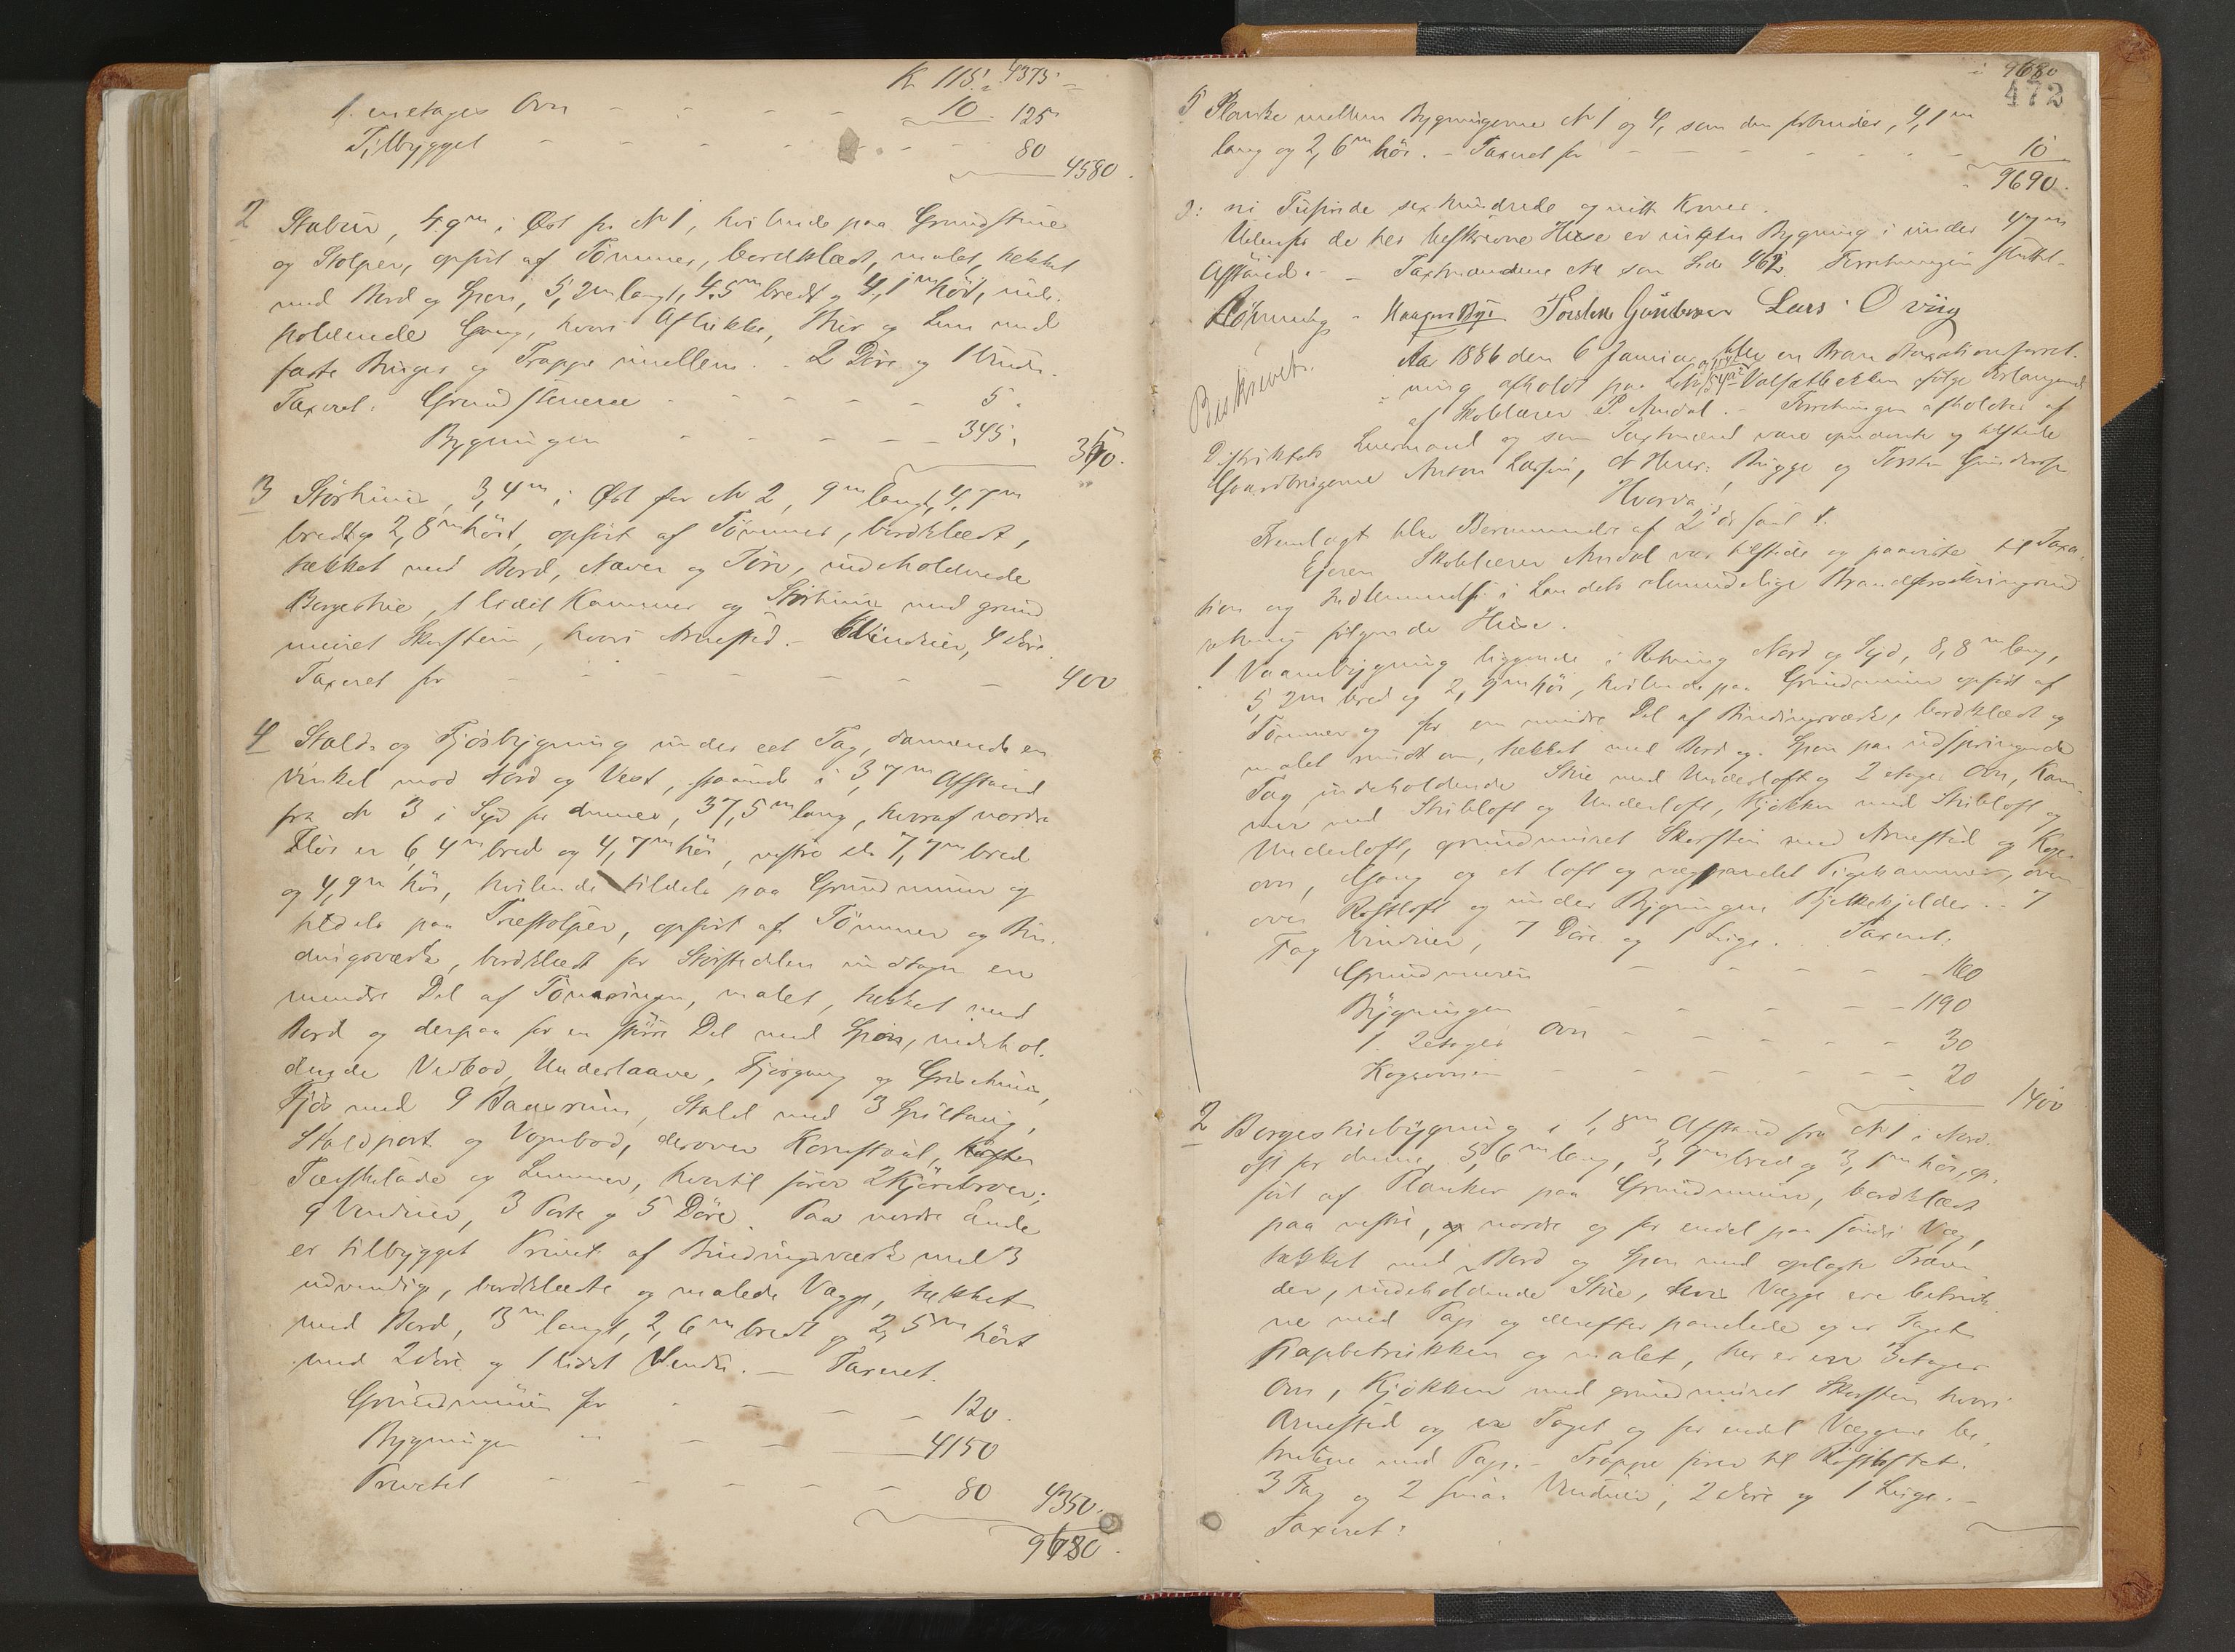 K 115. 4375
1. enetages Ovn - - - - 10. 125
Tilbygget - - - - - 80
4580.
2 Stabur, 4,9m i Øst for No 1, hvilende paa Grundstene
og Stolper, opført af Tømmer, bordklædt, malet, tækket
med Bord og Spon, 5,2m langt, 4,5m bredt og 4,1m høit, inde-
holdende Gang, hvori Aflukke, Bur og Lem med
faste Binger og Trappe imellem. - 2 Døre og 1 Vindu.
Taxeret: Grundstenene - - - - 5.
Bygningen - - - - 345.
350.
3 Størhuus, 3,4m i Øst for No 2, 9m langt, 4,7m
bredt og 2,8m høit, opført af Tømmer, bordklædt,
tækket med Bord, Næver og Törv, indeholdende
Borgestue, 1 lidet Kammer og Størhuus med grund
muret Skorsten, hvori Arnested. - 6 Vinduer, 4 Döre.
Taxeret for - - - - - - 400
4 Stald- og Fjøsbygning under eet Tag, dannende en
Vinkel mod Nord og Vest, staaende i 3,7m Afstand
fra No 3 i Syd for denne, 37,5m lang, hvoraf nordre
Fløi er 6,4m bred og 4,7m høi, vestre do 7,7m bred
og 4,9m høi, hvilende tildels paa Grundmuur og
tildels paa Træstolper, opført af Tömmer og Bin-
dingsværk, bordklædt for Störstedelen undtagen en
mindre Del af Tömringen, malet, tækket med
Bord og derpaa for en større Del med Spon, indehol-
dende Vedbod, Underlaave, Fjösgang og Grisehuus,
Fjös med 9 Baasrum, Stald med 3 Spiltoug,
Staldport og Vognbod, derover Kornstaal,
Tærskelade og Lemmer, hvortil fører 2 Kjörebroer;
9 Vinduer, 3 Porte og 5 Döre. Paa nordre Ende
er tilbygget Privet af Bindingsværk med 3
udvendig, bordklædte og malede Vægge, tækket
med Bord, 3m langt, 2,6m bredt og 2,5m høit
med 2 Döre og 1 lidet Vindu. - Taxeret.
Grundmuren for - - - - 120.
Bygningen " - - - 4150
Privetet - - - - - 80 4350.
9680.
i 9680
472
5 Planke mellem Bygningerne No 1 og 4, som den forbinder, 4,1m
lang og 2,6m høi. - Taxeret for - - - - - 10
9690.
ɔ: ni Tusinde sex hundrede og nitti Kroner.
Udenfor de her beskrevne Huse er ingen Bygning i under
Afstand. - Taxtmændene No som Side 462. Forretningen sluttet
Torsten Gundersen Lars Oviig
Beskrevet.
Aar 1886 den 6 Januar blev en Brandtaxationsforret-
ning afholdt paa Valsetbekken efter Forlangende
af Skolelærer P. Aundal. - Forretningen afholdtes af
Distriktets Lensmand og som Taxtmænd vare opnævnte og tilstede
Gaardbrugerne Anton Larsen, Brygge og Torsten Gundersen
Hvorda!
Fremlagt blev Berammelse af 2 ds saal.
Ejeren Skolelærer Aundal var tilstede og paaviste til Taxa-
tion og Indlemmelse i Landets almindelige Brandforsikringsind-
retning følgende Huse.
1 Vaanebygning liggende i Retning Nord og Syd, 8,8m lang,
5,2m bred og 2,9m høi, hvilende paa Grundmuur opført af
Tömmer og for en mindre Del af Bindingsværk, bordklædt og
malet rundt om, tækket med Bord og Spon paa udspringende
Tag indeholdende Stue med Underloft og 2 etages Ovn, Kam-
mer med Stribloft og Underloft, Kjökken med Stribloft og
Underloft, grundmuret Skorsten med Arnested og Koge-
ovn, Gang og et loft og vægpanelet Pigekammer, oven
over Röstloft og under Bygningen Bjelkekjelder. 7
Fag Vinduer, 7 Døre og 1 Luge. - Taxeret:
Grundmuren - - - - 160
Bygningen - - - - 1190
1. 2etages Ovn - - - - 30
Kogeovnen - - - - 20
1400
2 Borgestuebygning i 1,8m Afstand fra No 1 i Nord-
ost for denne, 5,6m lang, 3,9m bred og 3,1m høi, op-
ført af Planker paa Grundmuur, bordklædt
paa vestre, nordre og for endel paa søndre Væg,
tækket med Bord og Spon med oplagte Træven-
der, indeholdende Stue, hvis Vægge ere betruk-
ne med Pap og derefter panelede og er Taget
papbetrukken og malet, her er en 3 etages
Ovn, Kjökken med grundmuret Skorsten hvori
Arnested og er Taget og for endel Væggene be-
trukne med Pap. - Trappe fører til Röstloftet.
3 Fag og 2 smaa Vinduer, 2 Döre og 1 Luge. -
Taxeret: